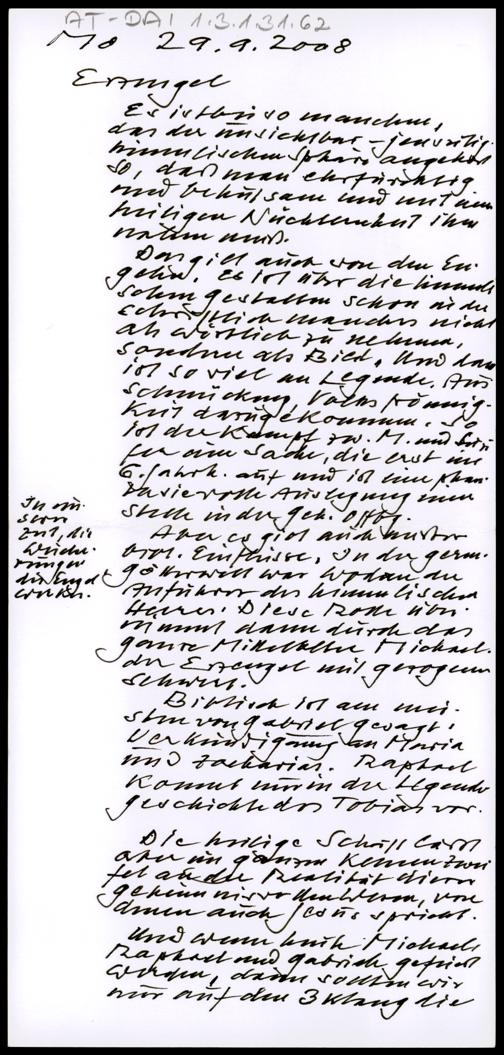 AT-DAI 1.3.1.31.62
Mo 29.9.2008
Erzengel
Es ist bei so manchem,
das der unsichtbar-jenseitig
himmlischen Sphäre angehört
so, daß man ehrfürchtig
und behutsam und mit einer
heiligen Nüchternheit ihm
nahen muß.
Das gilt auch von den En-
geln. Es ist über die himmli
schen Gestalten schon in der
schriftlich manches nicht
als wörtlich zu nehmen,
sondern als Bild. Und dann
ist so viel an Legende, Aus
schmückung, Volksfrömmig-
keit dazugekommen. So
ist der Kampf zw. M. und
eine Sache, die erst im
6. Jahrh. auf und ist eine phan
tasievolle Auslegung einer
Stelle in der geh. Offbg.
Aber es gibt auch
Einflüsse. In der germ.
Götterwelt war Wodan der
Anführer des himmlischen
Heeres. Diese Rolle über-
nimmt dann durch das
ganze Mittelalter Michael.
der Erzengel mit gezogenem
Schwert.
In un-
serer
Zeit, die
Wuche-
rungen
der Engel
Biblisch ist am mei-
sten von Gabriel gesagt.
Verkündigung an Maria
und Zacharias. Raphael
kommt nur in der Legende
geschichte des Tobias vor.
Die heilige Schrift läßt
aber im ganzen keinen Zwei
fel an der Realität dieser
geheimnisvollen Wesen, von
denen auch Jesus spricht.
Und wenn heute Michael,
Raphael und Gabriel gefeiert
werden, dann sollten wir
nur auf den 3klang die